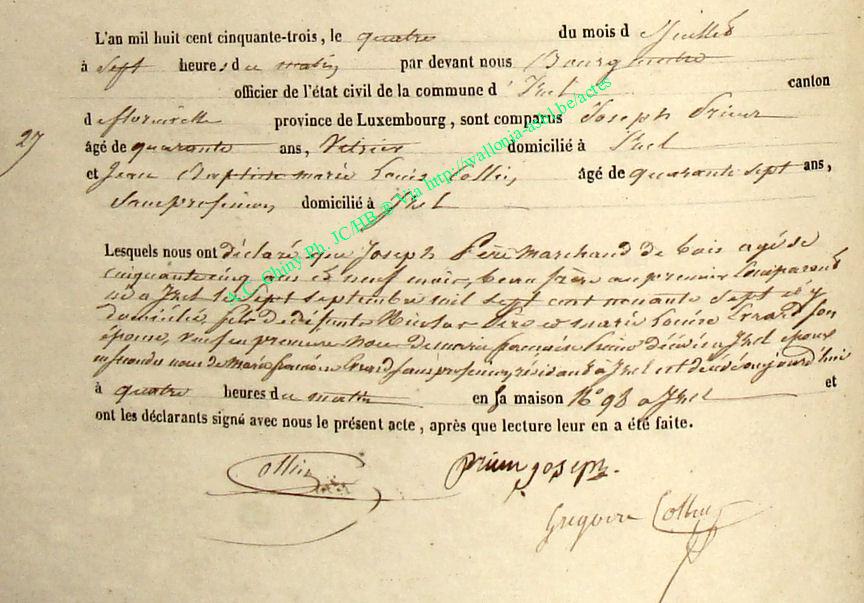 L'an mil huit cent cinquante-trois, le quatre du mois d Juillet
à sept heures du matin par devant nous Bourgmestre
officier de l'état civil de la commune d'Izel canton
de florenville province de Luxembourg, sont comparus Joseph Prieur
27
âgé de quarante ans, Vitrier domicilié à Izel
et Jean Baptiste marie Louis Collin, âgé de quarante sept ans,
Sans profession domicilié à Izel
Lesquels nous ont déclaré que Joseph Père marchand de bois agé de
cinquante cinq ans et neuf mois, beau frère au premier Comparant
né a Izel le sept septembre mil sept cent nonante sept et y
domicilié, fils de défunts Nicolas Père et marie Louise Evrard son
épouse, veuf en premiere noce de marie décédée a Izel époux
en secondes noces de Marie françoise Evrard sans profession, résidante à Izel est décédé aujourd'hui
à quatre heures du matin en sa maison N° 98 a Izel et
ont les déclarants signé avec nous le présent acte, après que lecture leur en a été faite.
Collin prieur joseph.
Gregoire Collin
A.C. Chiny Ph. JC/HB ® Via http://wallonia-asbl.be/actes